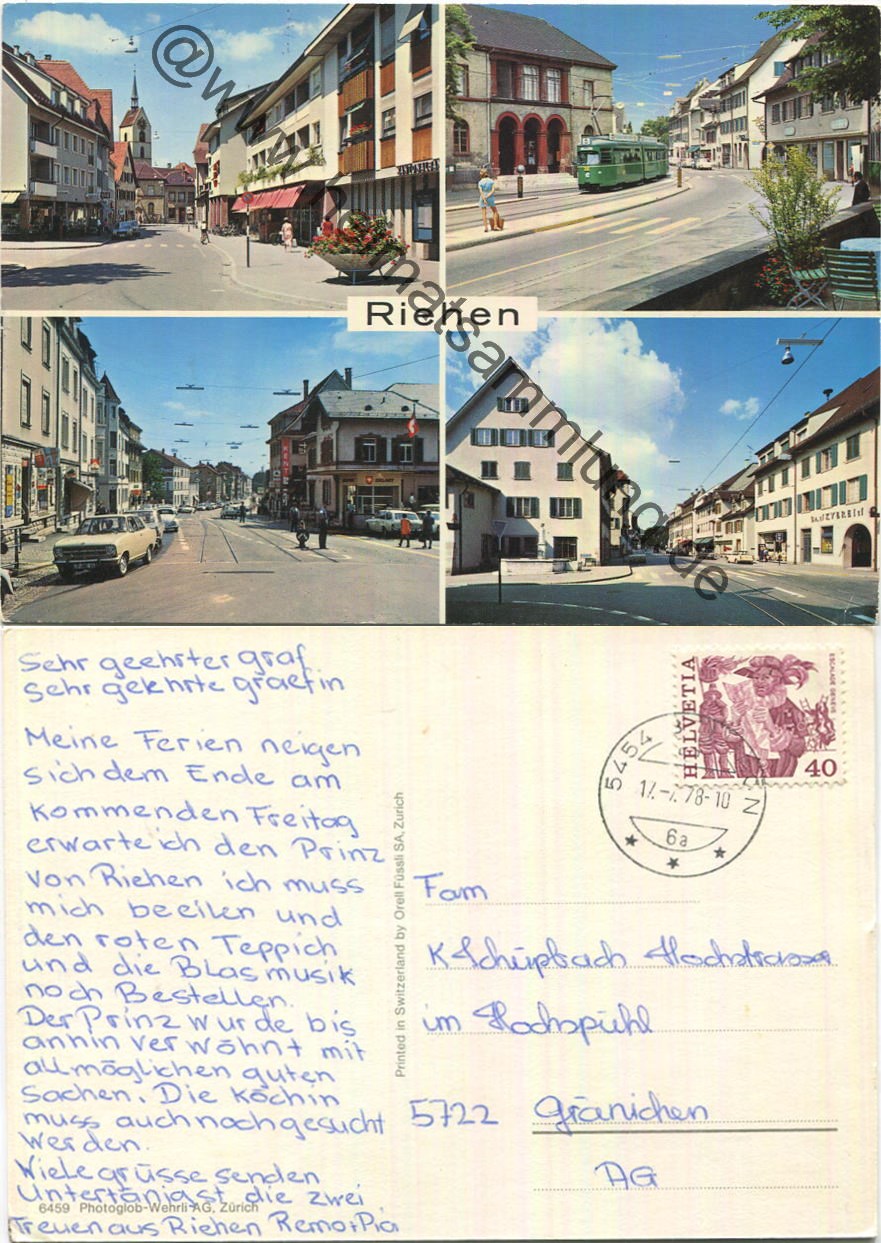 Riehen
KENT
BANKVEREIN
@www.heimatsammlung.de
Sehr geehrter graf
Sehr geehrte graefin
Meine Ferien neigen
sich dem Ende am
kommenden Freitag
erwarte ich den Prinz
von Riehen ich muss
mich beeilen und
den roten Teppich
und die Blasmusik
noch Bestellen.
Der Prinz wurde bis
anhin verwöhnt mit
allmöglichen guten
Sachen. Die köchin
muss auch noch gesucht
werden.
Viele grüsse senden
Untertänigst die zwei
Treuen aus Riehen Remo+Pia
6459 Photoglob-Wehrli AG, Zürich
Printed in Switzerland by Orell Füssli SA, Zurich
HELVETIA
ESCALADE GENÈVE
40
5454
17.-7.78-10
6a
Fam
K Schüpbach Hochstrasser
im Hochspühl
5722 Gränichen
AG